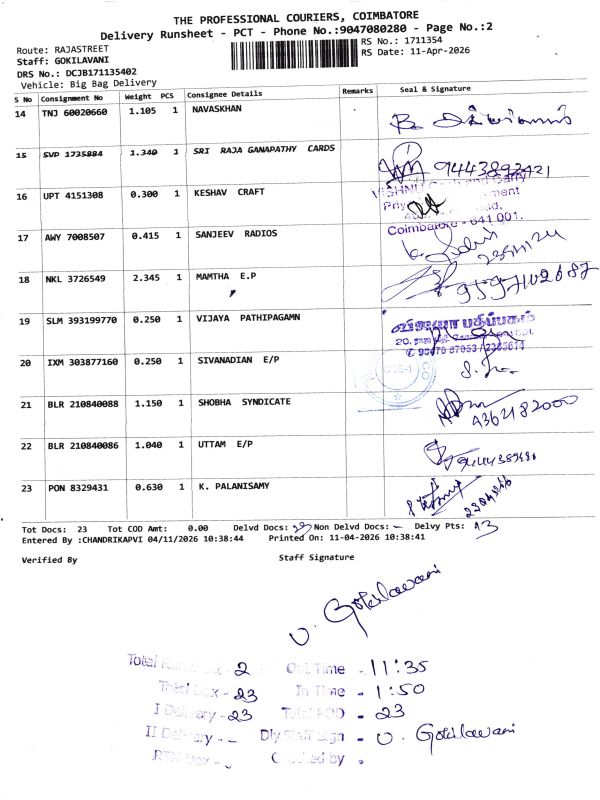 THE PROFESSIONAL COURIERS, COIMBATORE
Delivery Runsheet - PCT - Phone No.:9047080280 - Page No.:2
Route: RAJASTREET
RS No.: 1711354
Staff: GOKILAVANI
RS Date: 11-Apr-2026
DRS No.: DCJB171135402
Vehicle: Big Bag Delivery
S No Consignment No Weight PCS Consignee Details Remarks Seal & Signature
14 TNJ 60020660 1.105 1 NAVASKHAN
15 SVP 1735884 1.340 1 SRI RAJA GANAPATHY CARDS
16 UPT 4151308 0.300 1 KESHAV CRAFT
Coimbatore - 641 001.
17 AWY 7008507 0.415 1 SANJEEV RADIOS
18 NKL 3726549 2.345 1 MAMTHA E.P
9597102687
19 SLM 393199770 0.250 1 VIJAYA PATHIPAGAMN
விஜயா பதிப்பகம்
20 IXM 303877160 0.250 1 SIVANADIAN E/P
21 BLR 210840088 1.150 1 SHOBHA SYNDICATE
22 BLR 210840086 1.040 1 UTTAM E/P
23 PON 8329431 0.630 1 K. PALANISAMY
Tot Docs: 23 Tot COD Amt: 0.00 Delvd Docs: 23 Non Delvd Docs: - Delvy Pts: 13
Entered By :CHANDRIKAPVI 04/11/2026 10:38:44 Printed On: 11-04-2026 10:38:41
Verified By Staff Signature
U. Gokilavani
Total 2 Out Time - 11:35
Total Dox - 23 In Time - 1:50
I Delivery - 23 Total POD - 23
II Delivery - - Dly Staff Sign - U. Gokilavani
RTN Dox - Checked by -